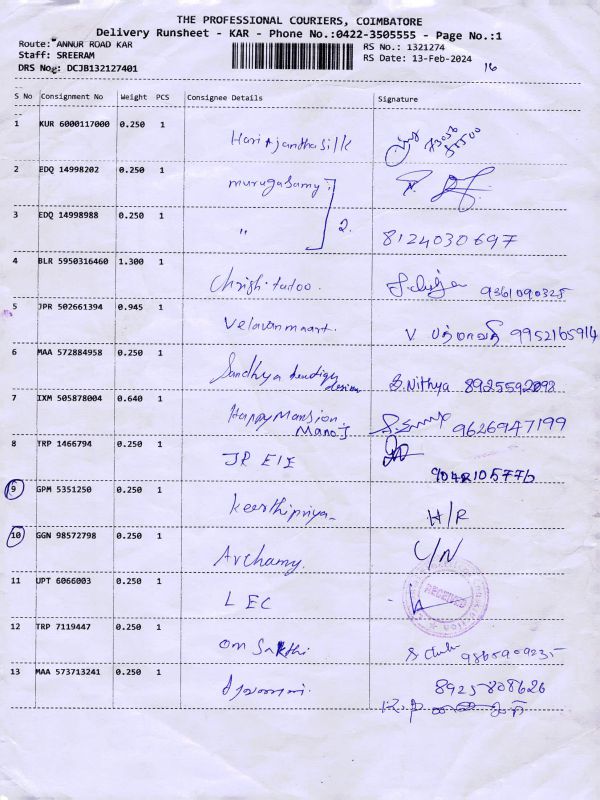 THE PROFESSIONAL COURIERS, COIMBATORE
Delivery Runsheet - KAR - Phone No.:0422-3505555 - Page No.:1
Route: ANNUR ROAD KAR
RS No.: 1321274
Staff: SREERAM
RS Date: 13-Feb-2024
DRS Nog: DCJB132127401
16
S No Consignment No Weight PCS Consignee Details Signature
1 KUR 6000117000 0.250 1
2 EDQ 14998202 0.250 1 murugasamy
3 EDQ 14998988 0.250 1 " 2. 8124030697
4 BLR 5950316460 1.300 1 9361090325
5 JPR 502661394 0.945 1 Velavan maart. V. பத்மாவதி 9952165914
6 MAA 572884958 0.250 1 Sandhya design S.Nithya 8925592092
7 IXM 505878004 0.640 1 Happy Mansion Manoj 9626947199
8 TRP 1466794 0.250 1 JR EIE 9042105776
9 GPM 5351250 0.250 1 keerthipriya H/R
10 GGN 98572798 0.250 1 Archamy. C/N
11 UPT 6066003 0.250 1 LEC RECEIVED
12 TRP 7119447 0.250 1 om Sakthi 9865909235
13 MAA 573713241 0.250 1 8925808626